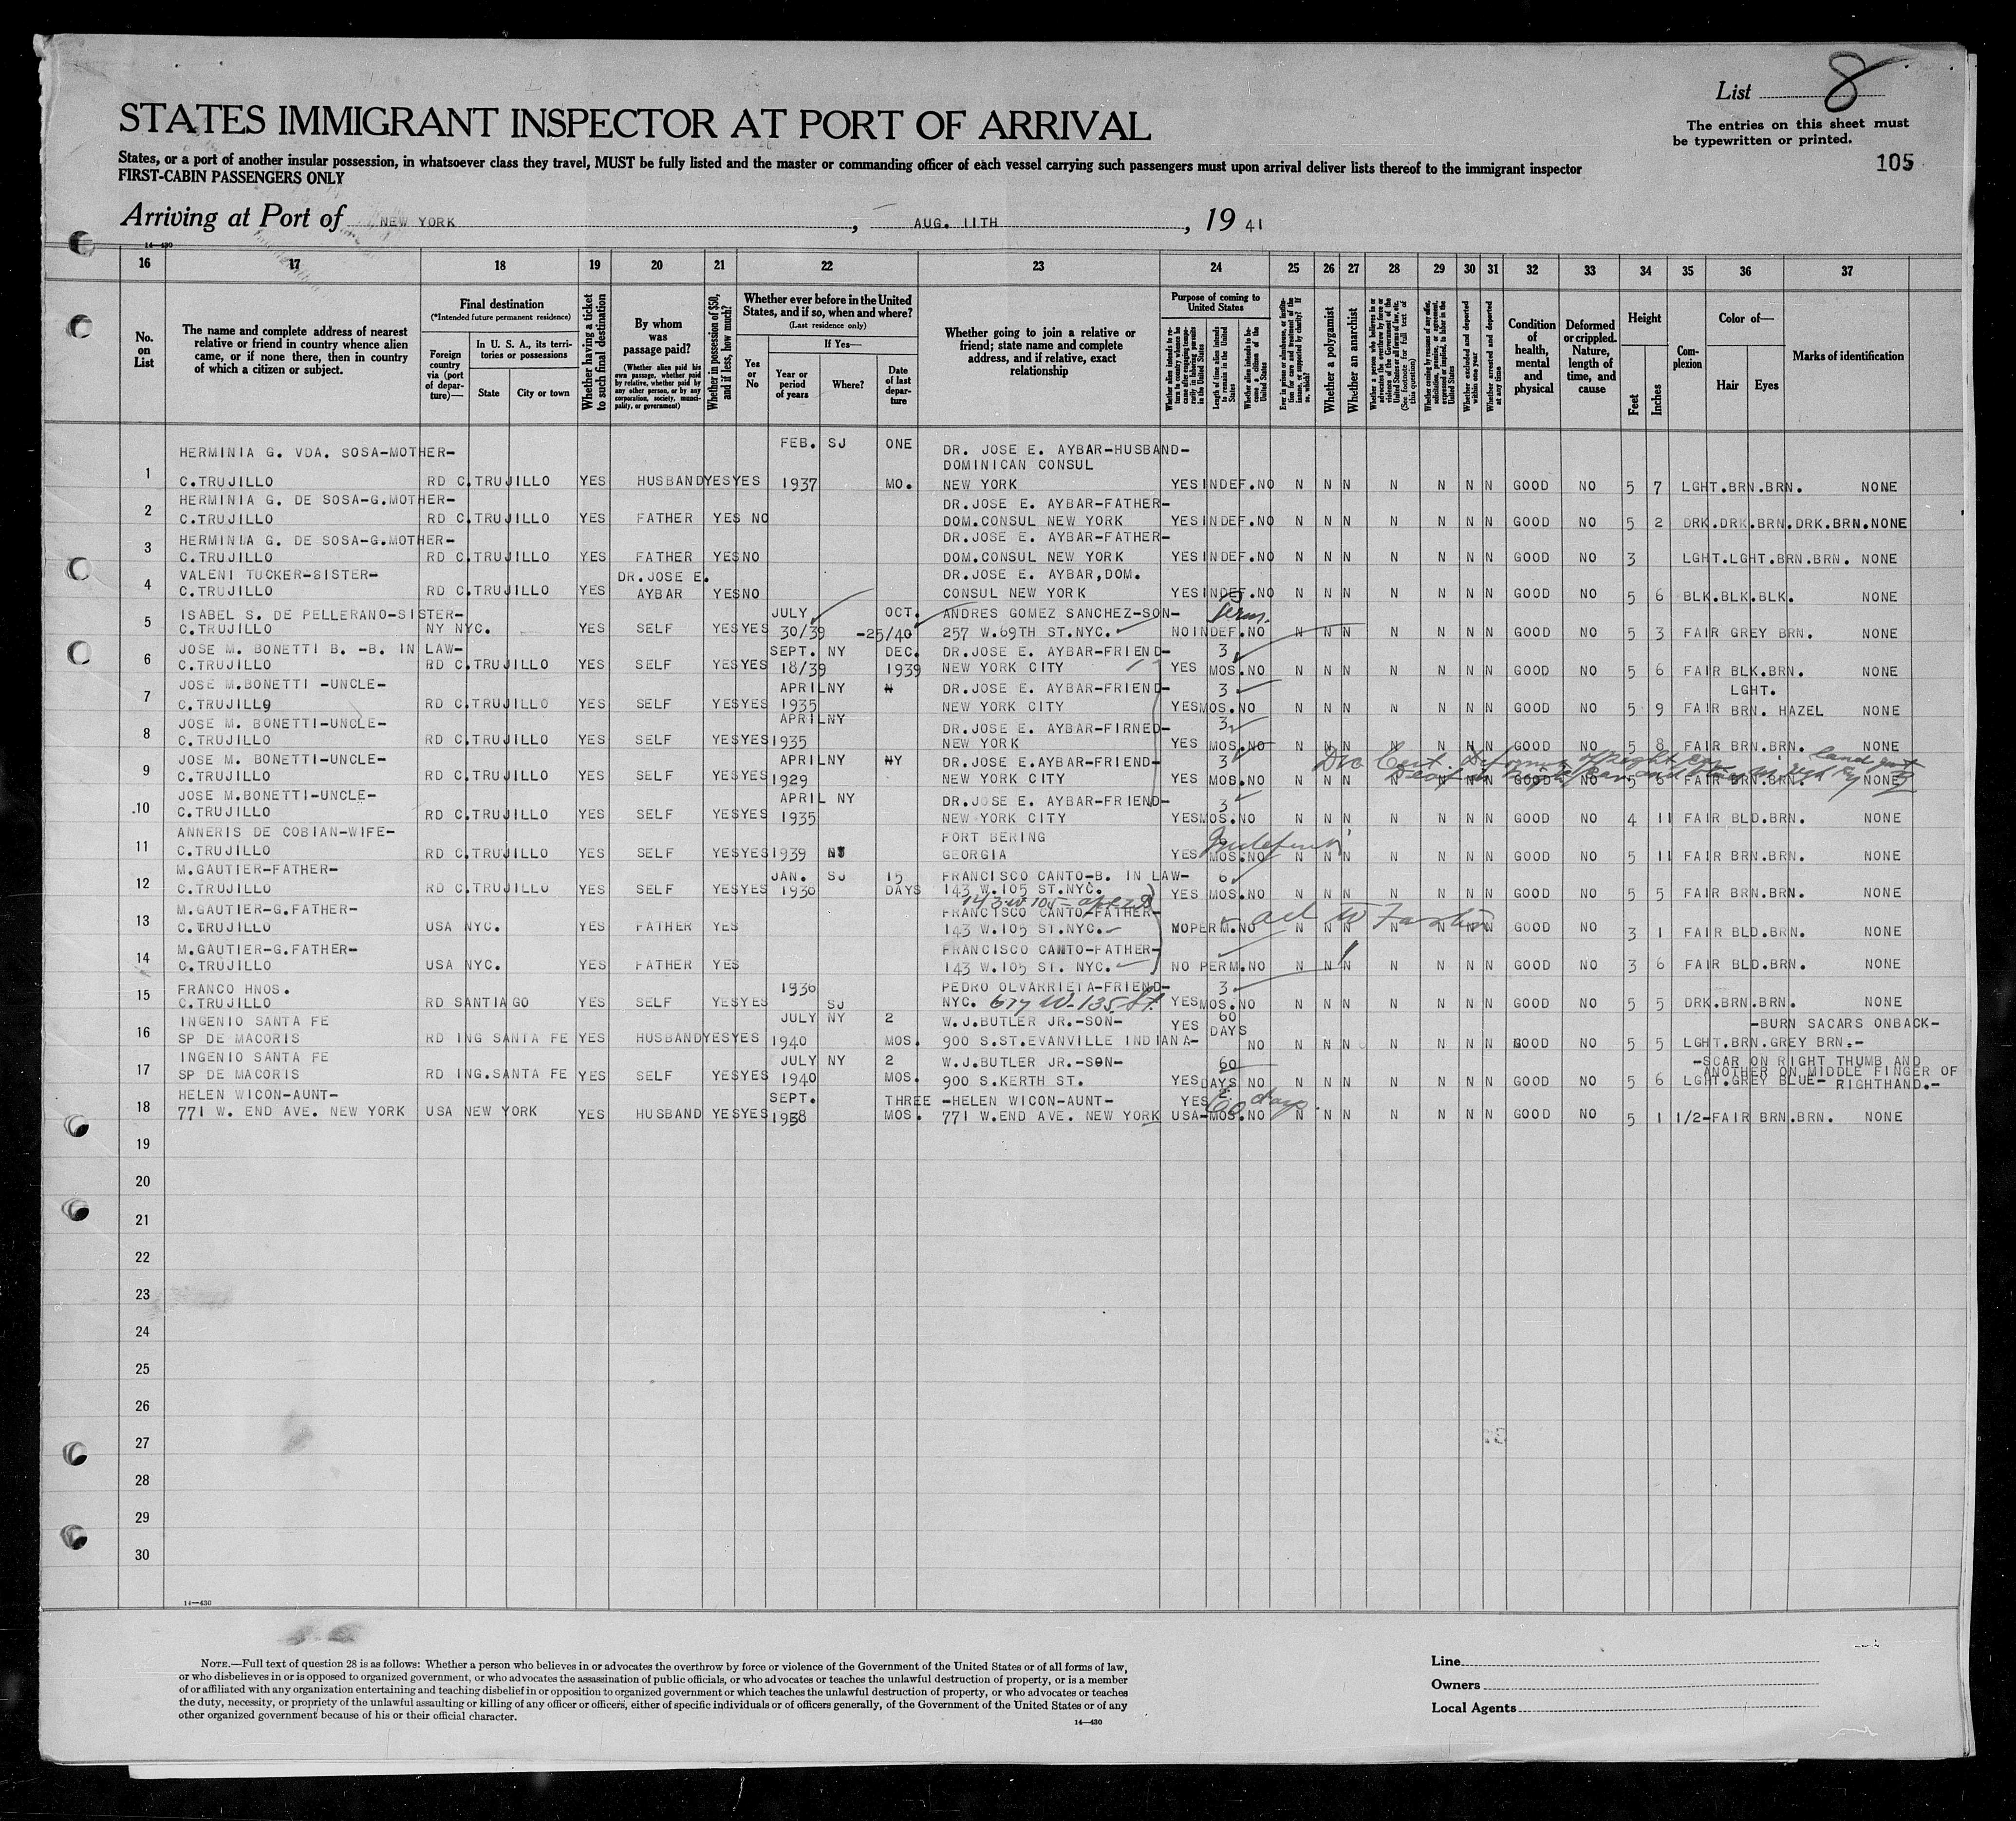 List 8
STATES IMMIGRANT INSPECTOR AT PORT OF ARRIVAL
The entries on this sheet must
be typewritten or printed.
States, or a port of another insular possession, in whatsoever class they travel, MUST be fully listed and the master or commanding officer of each vessel carrying such passengers must upon arrival deliver lists thereof to the immigrant inspector
FIRST-CABIN PASSENGERS ONLY
105
Arriving at Port of NEW YORK, AUG. 11TH, 19 41
14—430
16 17 18 19 20 21 22 23 24 25 26 27 28 29 30 31 32 33 34 35 36 37
No. on List
The name and complete address of nearest relative or friend in country whence alien came, or if none there, then in country of which a citizen or subject.
Final destination
(*Intended future permanent residence)
Foreign country via (port of departure)—
In U. S. A., its territories or possessions
State
City or town
Whether having a ticket to such final destination
By whom was passage paid?
(Whether alien paid his own passage, whether paid by relative, whether paid by any other person, or by any corporation, society, municipality, or government)
Whether in possession of $50, and if less, how much?
Whether ever before in the United States, and if so, when and where?
(Last residence only)
Yes or No
If Yes—
Year or period of years
Where?
Date of last departure
Whether going to join a relative or friend; state name and complete address, and if relative, exact relationship
Purpose of coming to United States
Length of time alien intends to remain in the United States
Whether alien intends to become a citizen of the United States
Whether a polygamist
Whether an anarchist
Whether excluded and deported within one year
Whether arrested and deported at any time
Condition of health, mental and physical
Deformed or crippled. Nature, length of time, and cause
Height
Feet
Inches
Complexion
Color of—
Hair
Eyes
Marks of identification
HERMINIA G. VDA. SOSA-MOTHER- FEB. SJ ONE DR. JOSE E. AYBAR-HUSBAND-
DOMINICAN CONSUL
1 C.TRUJILLO RD C.TRUJILLO YES HUSBAND YES YES 1937 MO. NEW YORK YES INDEF. NO N N N N N N N GOOD NO 5 7 LGHT.BRN.BRN. NONE
HERMINIA G. DE SOSA-G.MOTHER- DR.JOSE E. AYBAR-FATHER-
2 C.TRUJILLO RD C.TRUJILLO YES FATHER YES NO DOM.CONSUL NEW YORK YES INDEF. NO N N N N N N N GOOD NO 5 2 DRK.DRK.BRN.DRK.BRN.NONE
HERMINIA G. DE SOSA-G.MOTHER- DR.JOSE E. AYBAR-FATHER-
3 C.TRUJILLO RD C.TRUJILLO YES FATHER YES NO DOM.CONSUL NEW YORK YES INDEF. NO N N N N N N N GOOD NO 3 LGHT.LGHT.BRN.BRN. NONE
VALENI TUCKER-SISTER- DR.JOSE E. DR.JOSE E. AYBAR,DOM.
4 C.TRUJILLO RD C.TRUJILLO YES AYBAR YES NO CONSUL NEW YORK YES INDEF. NO N N N N N N N GOOD NO 5 6 BLK.BLK.BLK. NONE
ISABEL S. DE PELLERANO-SISTER- JULY OCT. ANDRES GOMEZ SANCHEZ-SON-
5 C.TRUJILLO NY NYC. YES SELF YES YES 30/39 -25/40 257 W.69TH ST.NYC. NO INDEF. NO N N N N N N N GOOD NO 5 3 FAIR GREY BRN. NONE
JOSE M. BONETTI B. -B. IN LAW- SEPT. NY DEC. DR.JOSE E. AYBAR-FRIEND- 3
6 C.TRUJILLO RD C.TRUJILLO YES SELF YES YES 18/39 1939 NEW YORK CITY YES MOS. NO N N N N N N N GOOD NO 5 6 FAIR BLK.BRN. NONE
JOSE M.BONETTI -UNCLE- APRIL NY DR.JOSE E. AYBAR-FRIEND- 3 LGHT.
7 C.TRUJILLO RD C.TRUJILLO YES SELF YES YES 1935 NEW YORK CITY YES MOS. NO N N N N N N N GOOD NO 5 9 FAIR BRN. HAZEL NONE
JOSE M. BONETTI-UNCLE- APRIL NY DR.JOSE E. AYBAR-FIRNED- 3
8 C.TRUJILLO RD C.TRUJILLO YES SELF YES YES 1935 NEW YORK YES MOS. NO N N N N N N N GOOD NO 5 8 FAIR BRN.BRN. NONE
JOSE M. BONETTI-UNCLE- APRIL NY NY DR.JOSE E.AYBAR-FRIEND- 3
9 C.TRUJILLO RD C.TRUJILLO YES SELF YES YES 1929 NEW YORK CITY YES MOS. NO N N N N N N N GOOD NO 5 6 FAIR BRN.BRN. NONE
JOSE M.BONETTI-UNCLE- APRIL NY DR.JOSE E. AYBAR-FRIEND- 3
10 C.TRUJILLO RD C.TRUJILLO YES SELF YES YES 1935 NEW YORK CITY YES MOS. NO N N N N N N N GOOD NO 4 11 FAIR BLD.BRN. NONE
ANNERIS DE COBIAN-WIFE- FORT BERING
11 C.TRUJILLO RD C.TRUJILLO YES SELF YES YES 1939 GEORGIA YES MOS. NO N N N N N N N GOOD NO 5 11 FAIR BRN.BRN. NONE
M.GAUTIER-FATHER- JAN. SJ 15 FRANCISCO CANTO-B. IN LAW- 6
12 C.TRUJILLO RD C.TRUJILLO YES SELF YES YES 1936 DAYS 143 W.105 ST.NYC. YES MOS. NO N N N N N N N GOOD NO 5 5 FAIR BRN.BRN. NONE
M.GAUTIER-G.FATHER- FRANCISCO CANTO-FATHER-
13 C.TRUJILLO USA NYC. YES FATHER YES 143 W.105 ST.NYC. NO PERM. NO N N N N N N N GOOD NO 3 1 FAIR BLD.BRN. NONE
M.GAUTIER-G.FATHER- FRANCISCO CANTO-FATHER-
14 C.TRUJILLO USA NYC. YES FATHER YES 143 W.105 ST. NYC. NO PERM. NO N N N N N N N GOOD NO 3 6 FAIR BLD.BRN. NONE
FRANCO HNOS. 1936 PEDRO OLVARRIETA-FRIEND- 3
15 C.TRUJILLO RD SANTIAGO YES SELF YES YES SJ NYC. 677 W-135 St. YES MOS. NO N N N N N N N GOOD NO 5 5 DRK.BRN.BRN. NONE
INGENIO SANTA FE JULY NY 2 W.J.BUTLER JR.-SON- YES 60 DAYS -BURN SACARS ONBACK-
16 SP DE MACORIS RD ING SANTA FE YES HUSBAND YES YES 1940 MOS. 900 S.ST.EVANVILLE INDIANA- NO N N N N N N N GOOD NO 5 5 LGHT.BRN.GREY BRN.-
INGENIO SANTA FE JULY NY 2 W.J.BUTLER JR.-SON- 60 -SCAR ON RIGHT THUMB AND
ANOTHER ON MIDDLE FINGER OF
17 SP DE MACORIS RD ING.SANTA FE YES SELF YES YES 1940 MOS. 900 S.KERTH ST. YES DAYS NO N N N N N N N GOOD NO 5 6 LGHT.GREY BLUE- RIGHTHAND.-
HELEN WICON-AUNT- SEPT. THREE -HELEN WICON-AUNT- YES 60 days
18 771 W. END AVE. NEW YORK USA NEW YORK YES HUSBAND YES YES 1938 MOS. 771 W.END AVE. NEW YORK USA-MOS. NO N N N N N N N GOOD NO 5 1 1/2-FAIR BRN.BRN. NONE
19
20
21
22
23
24
25
26
27
28
29
30
14—430
NOTE.—Full text of question 28 is as follows: Whether a person who believes in or advocates the overthrow by force or violence of the Government of the United States or of all forms of law,
or who disbelieves in or is opposed to organized government, or who advocates the assassination of public officials, or who advocates or teaches the unlawful destruction of property, or is a member
of or affiliated with any organization entertaining and teaching disbelief in or opposition to organized government or which teaches the unlawful destruction of property, or who advocates or teaches
the duty, necessity, or propriety of the unlawful assaulting or killing of any officer or officers, either of specific individuals or of officers generally, of the Government of the United States or of any
other organized government because of his or their official character.
14—430
Line
Owners
Local Agents